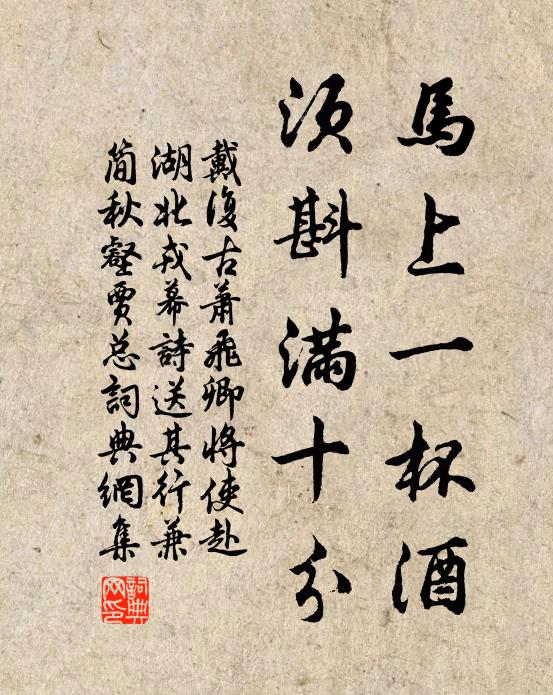 馬上一杯酒
須斟滿十分
戴復古蕭飛卿將使赴
湖北戎幕詩送其行兼
簡秋壑賈总詞典網集
詞典網印